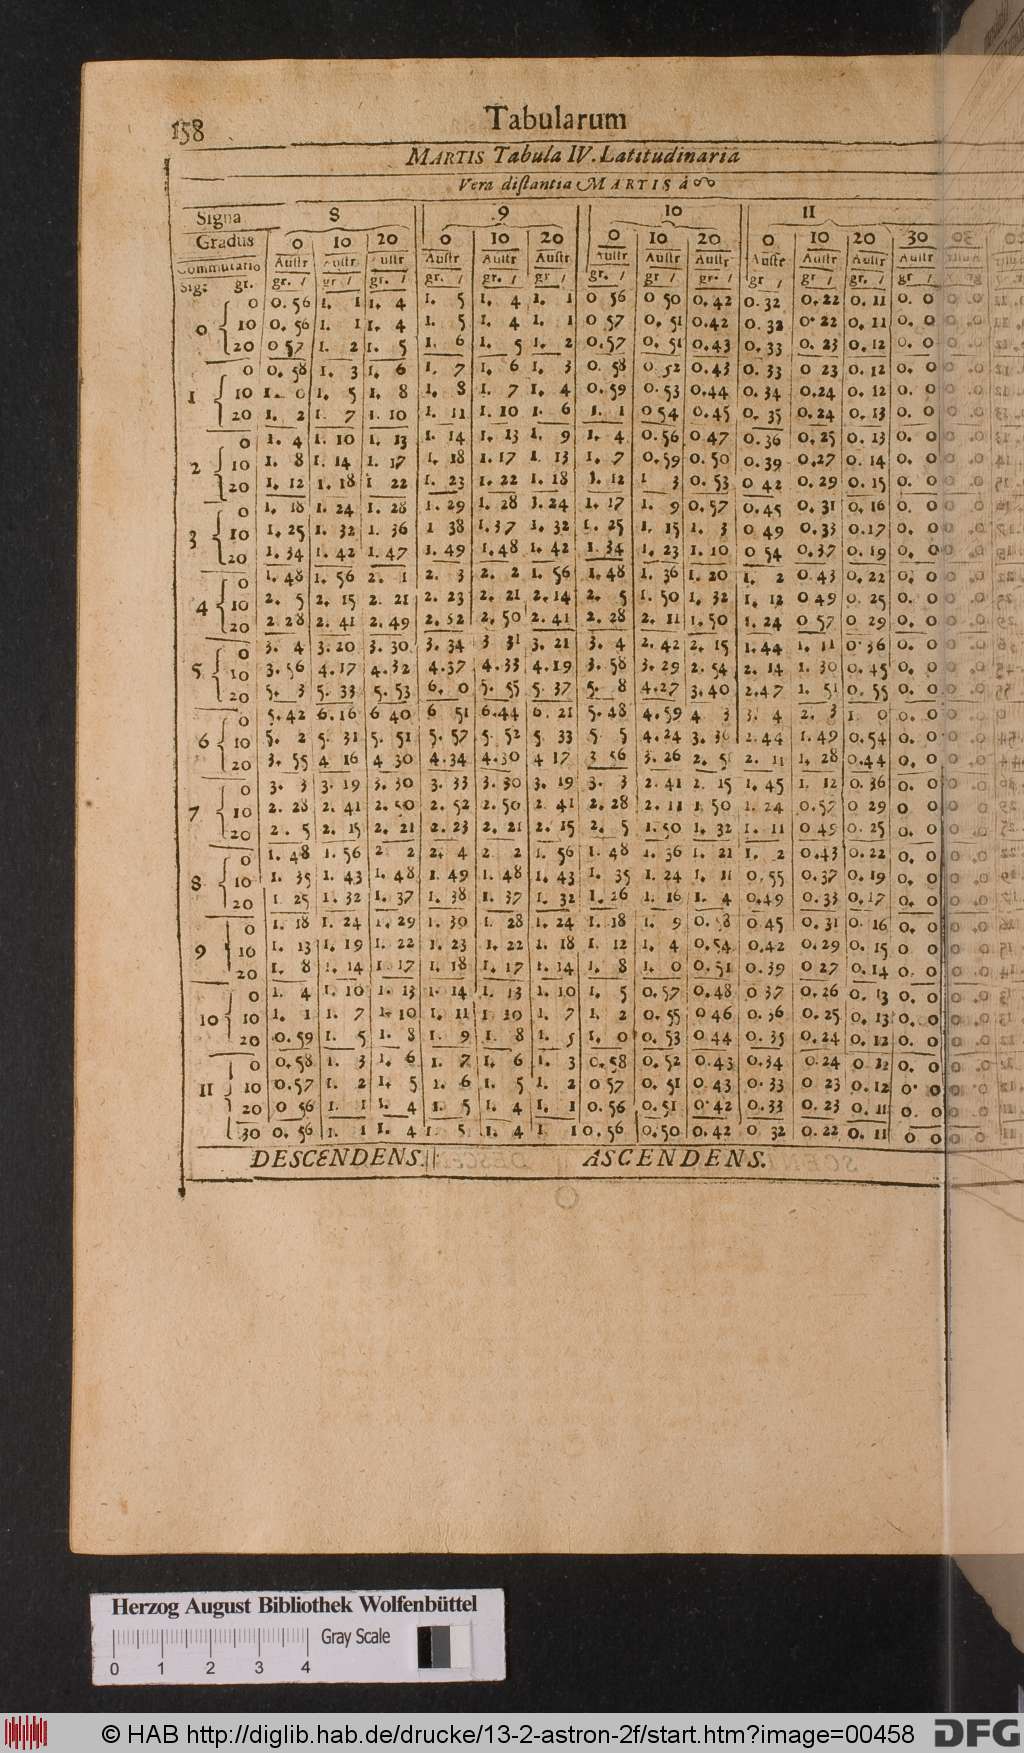 158 Tabularum
MARTIS Tabula IV. Latitudinaria
Vera distantia MARTIS á ☊
Signa 8 9 10 11
Gradus 0 10 20 0 10 20 0 10 20 0 10 20 30
Commutatio Austr Austr Austr Austr Austr Austr Austr Austr Austr Austr Austr Austr Austr
Sig: gr. gr. / gr / gr. / gr. / gr. / gr / gr. / gr. / gr. / gr / gr / gr. / gr /
0 0 0.56 1. 1 1. 4 1. 5 1. 4 1. 1 0 56 0 50 0.42 0.32 0.22 0.11 0. 0
10 0.56 1. 1 1. 4 1. 5 1. 4 1. 1 0 57 0. 51 0.42 0.32 0.22 0.11 0. 0
20 0 57 1. 2 1. 5 1. 6 1. 5 1. 2 0.57 0. 51 0.43 0.33 0.23 0.12 0. 0
1 0 0.58 1. 3 1. 6 1. 7 1. 6 1. 3 0.58 0.52 0.43 0.33 0 23 0.12 0. 0
10 1. 0 1. 5 1. 8 1. 8 1. 7 1. 4 0.59 0.53 0.44 0.34 0.24 0.12 0. 0
20 1. 2 1. 7 1. 10 1. 11 1. 10 1. 6 1. 1 0 54 0.45 0.35 0.24 0.13 0. 0
2 0 1. 4 1. 10 1. 13 1. 14 1. 13 1. 9 1. 4 0.56 0 47 0.36 0.25 0.13 0. 0
10 1. 8 1. 14 1. 17 1. 18 1.17 1. 13 1. 7 0.59 0.50 0.39 0.27 0.14 0. 0
20 1. 12 1. 18 1 22 1. 23 1. 22 1. 18 1. 12 1 3 0.53 0 42 0.29 0.15 0. 0
3 0 1. 18 1. 24 1. 28 1. 29 1. 28 1.24 1. 17 1. 9 0.57 0.45 0.31 0.16 0. 0
10 1. 25 1. 32 1. 36 1 38 1.37 1. 32 1. 25 1. 15 1. 3 0 49 0.33 0.17 0. 0
20 1. 34 1. 42 1. 47 1. 49 1.48 1. 42 1. 34 1. 23 1. 10 0 54 0.37 0.19 0. 0
4 0 1. 48 1. 56 2. 1 2. 3 2. 2 1. 56 1.48 1. 36 1. 20 1. 2 0 43 0.22 0. 0
10 2. 5 2. 15 2. 21 2. 23 2. 21 2.14 2. 5 1. 50 1. 32 1. 12 0 49 0. 25 0. 0
20 2 28 2. 41 2. 49 2. 52 2. 50 2. 41 2. 28 2. 11 1. 50 1. 24 0 57 0 29 0. 0
5 0 3. 4 3. 20 3. 30 3. 34 3 31 3. 21 3. 4 2. 42 2. 15 1. 44 1. 11 0 36 0. 0
10 3. 56 4.17 4.32 4.37 4.33 4.19 3. 58 3. 29 2. 54 2. 14 1. 30 0.45 0. 0
20 5. 3 5. 33 5. 53 6. 0 5. 55 5. 37 5. 8 4.27 3.40 2.47 1. 51 0. 55 0. 0
6 0 5.42 6.16 6 40 6 51 6.44 6. 21 5.48 4.59 4 3 3. 4 2. 3 1. 0 0. 0
10 5. 2 5. 31 5. 51 5. 57 5. 52 5 33 5 5 4.24 3. 36 2.44 1. 49 0.54 0. 0
20 3. 55 4 16 4 30 4.34 4.30 4 17 3 56 3.26 2. 51 2. 11 1. 28 0.44 0. 0
7 0 3. 3 3. 19 3. 30 3. 33 3. 30 3. 19 3. 3 2. 41 2. 15 1. 45 1. 12 0.36 0. 0
10 2. 28 2. 41 2. 50 2. 52 2. 50 2. 41 2. 28 2. 11 1. 50 1. 24 0.57 0 29 0 0
20 2. 5 2. 15 2. 21 2. 23 2. 21 2. 15 2. 5 1.50 1. 32 1. 11 0 49 0.25 0. 0
8 0 1. 48 1. 56 2 2 2. 4 2 2 1. 56 1. 48 1. 36 1. 21 1. 2 0.43 0.22 0. 0
10 1. 35 1. 43 1. 48 1. 49 1. 48 1. 43 1. 35 1. 24 1. 11 0.55 0.37 0.19 0. 0
20 1 25 1. 32 1. 37 1. 38 1. 37 1. 32 1. 26 1. 16 1. 4 0.49 0.33 0.17 0. 0
9 0 1. 18 1. 24 1. 29 1. 30 1. 28 1. 24 1. 18 1. 9 0.58 0 45 0.31 0. 16 0 0
10 1. 13 1. 19 1. 22 1. 23 1. 22 1. 18 1. 12 1. 4 0.54 0.42 0.29 0. 15 0 0
20 1. 8 1. 14 1. 17 1. 18 1. 17 1. 14 1. 8 1. 0 0.51 0.39 0 27 0.14 0. 0
10 0 1. 4 1. 10 1. 13 1. 14 1. 13 1. 10 1. 5 0.57 0.48 0 37 0.26 0.13 0. 0
10 1. 1 1. 7 1. 10 1. 11 1 10 1. 7 1. 2 0.55 0 46 0.36 0.25 0.13 0. 0
20 0.59 1. 5 1. 8 1. 9 1. 8 1. 5 1. 0 0.53 0 44 0.35 0.24 0.12 0. 0
11 0 0.58 1. 3 1. 6 1. 7 1. 6 1. 3 0.58 0.52 0.43 0.34 0.24 0 12 0. 0
10 0.57 1. 2 1. 5 1. 6 1. 5 1. 2 0 57 0. 51 0 43 0.33 0 23 0.12 0. 0
20 0 56 1. 1 1. 4 1. 5 1. 4 1. 1 0. 56 0.51 0.42 0.33 0. 23 0.11 0. 0
30 0. 56 1. 1 1. 4 1. 5 1. 4 1 1 0.56 0.50 0.42 0 32 0.22 0.11 0 0
DESCENDENS. ASCENDENS.
Herzog August Bibliothek Wolfenbüttel
Gray Scale
0 1 2 3 4
© HAB http://diglib.hab.de/drucke/13-2-astron-2f/start.htm?image=00458 DFG